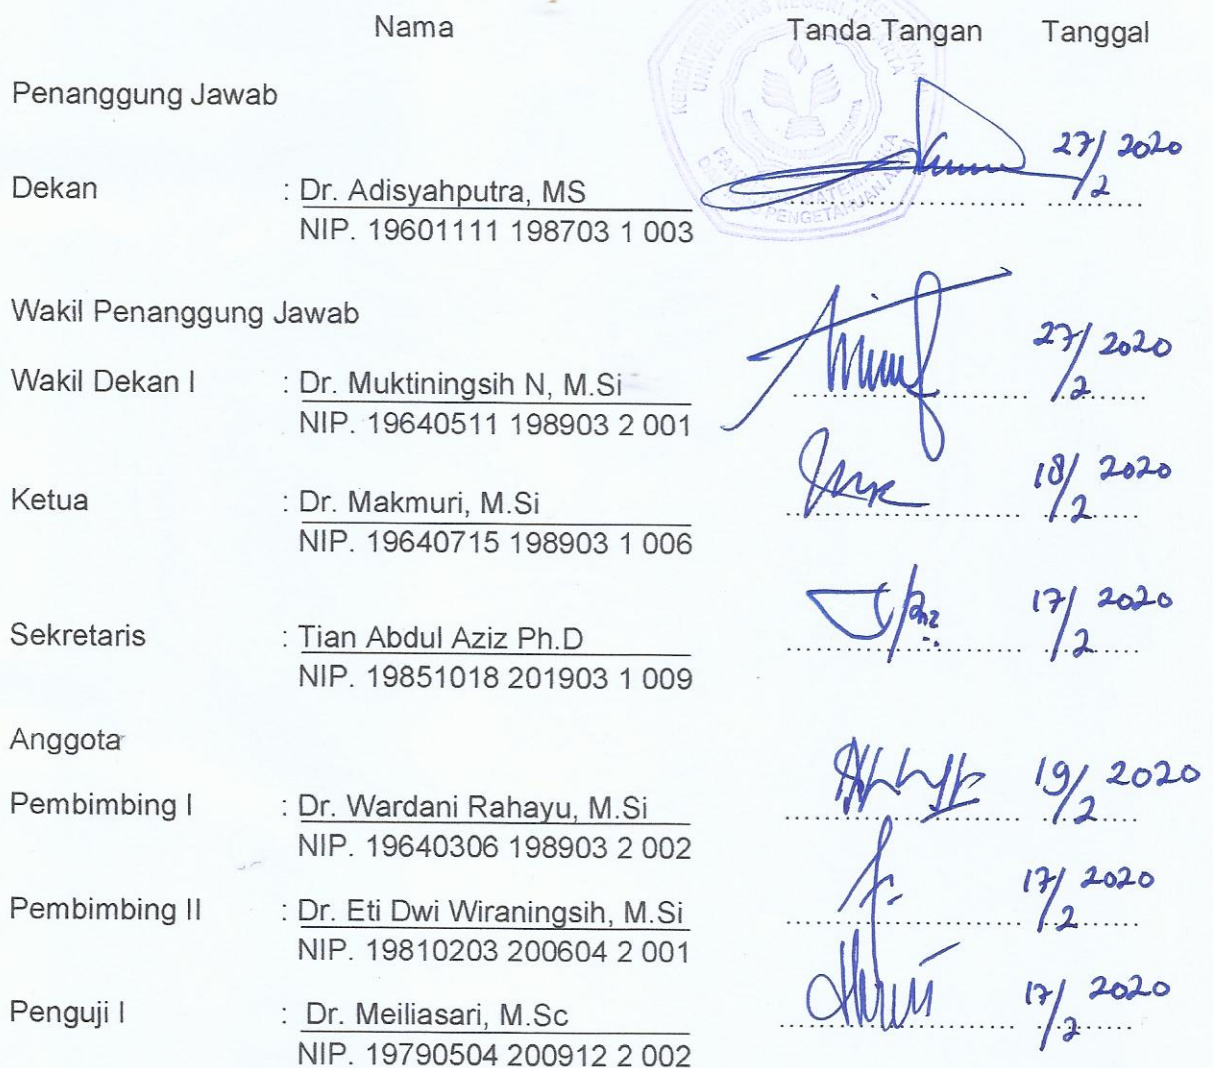 Nama Tanda Tangan Tanggal
Penanggung Jawab
27/2 2020
Dekan : Dr. Adisyahputra, MS
NIP. 19601111 198703 1 003
Wakil Penanggung Jawab
27/2 2020
Wakil Dekan I : Dr. Muktiningsih N, M.Si
NIP. 19640511 198903 2 001
18/2 2020
Ketua : Dr. Makmuri, M.Si
NIP. 19640715 198903 1 006
17/2 2020
Sekretaris : Tian Abdul Aziz Ph.D
NIP. 19851018 201903 1 009
Anggota
19/2 2020
Pembimbing I : Dr. Wardani Rahayu, M.Si
NIP. 19640306 198903 2 002
17/2 2020
Pembimbing II : Dr. Eti Dwi Wiraningsih, M.Si
NIP. 19810203 200604 2 001
17/2 2020
Penguji I : Dr. Meiliasari, M.Sc
NIP. 19790504 200912 2 002